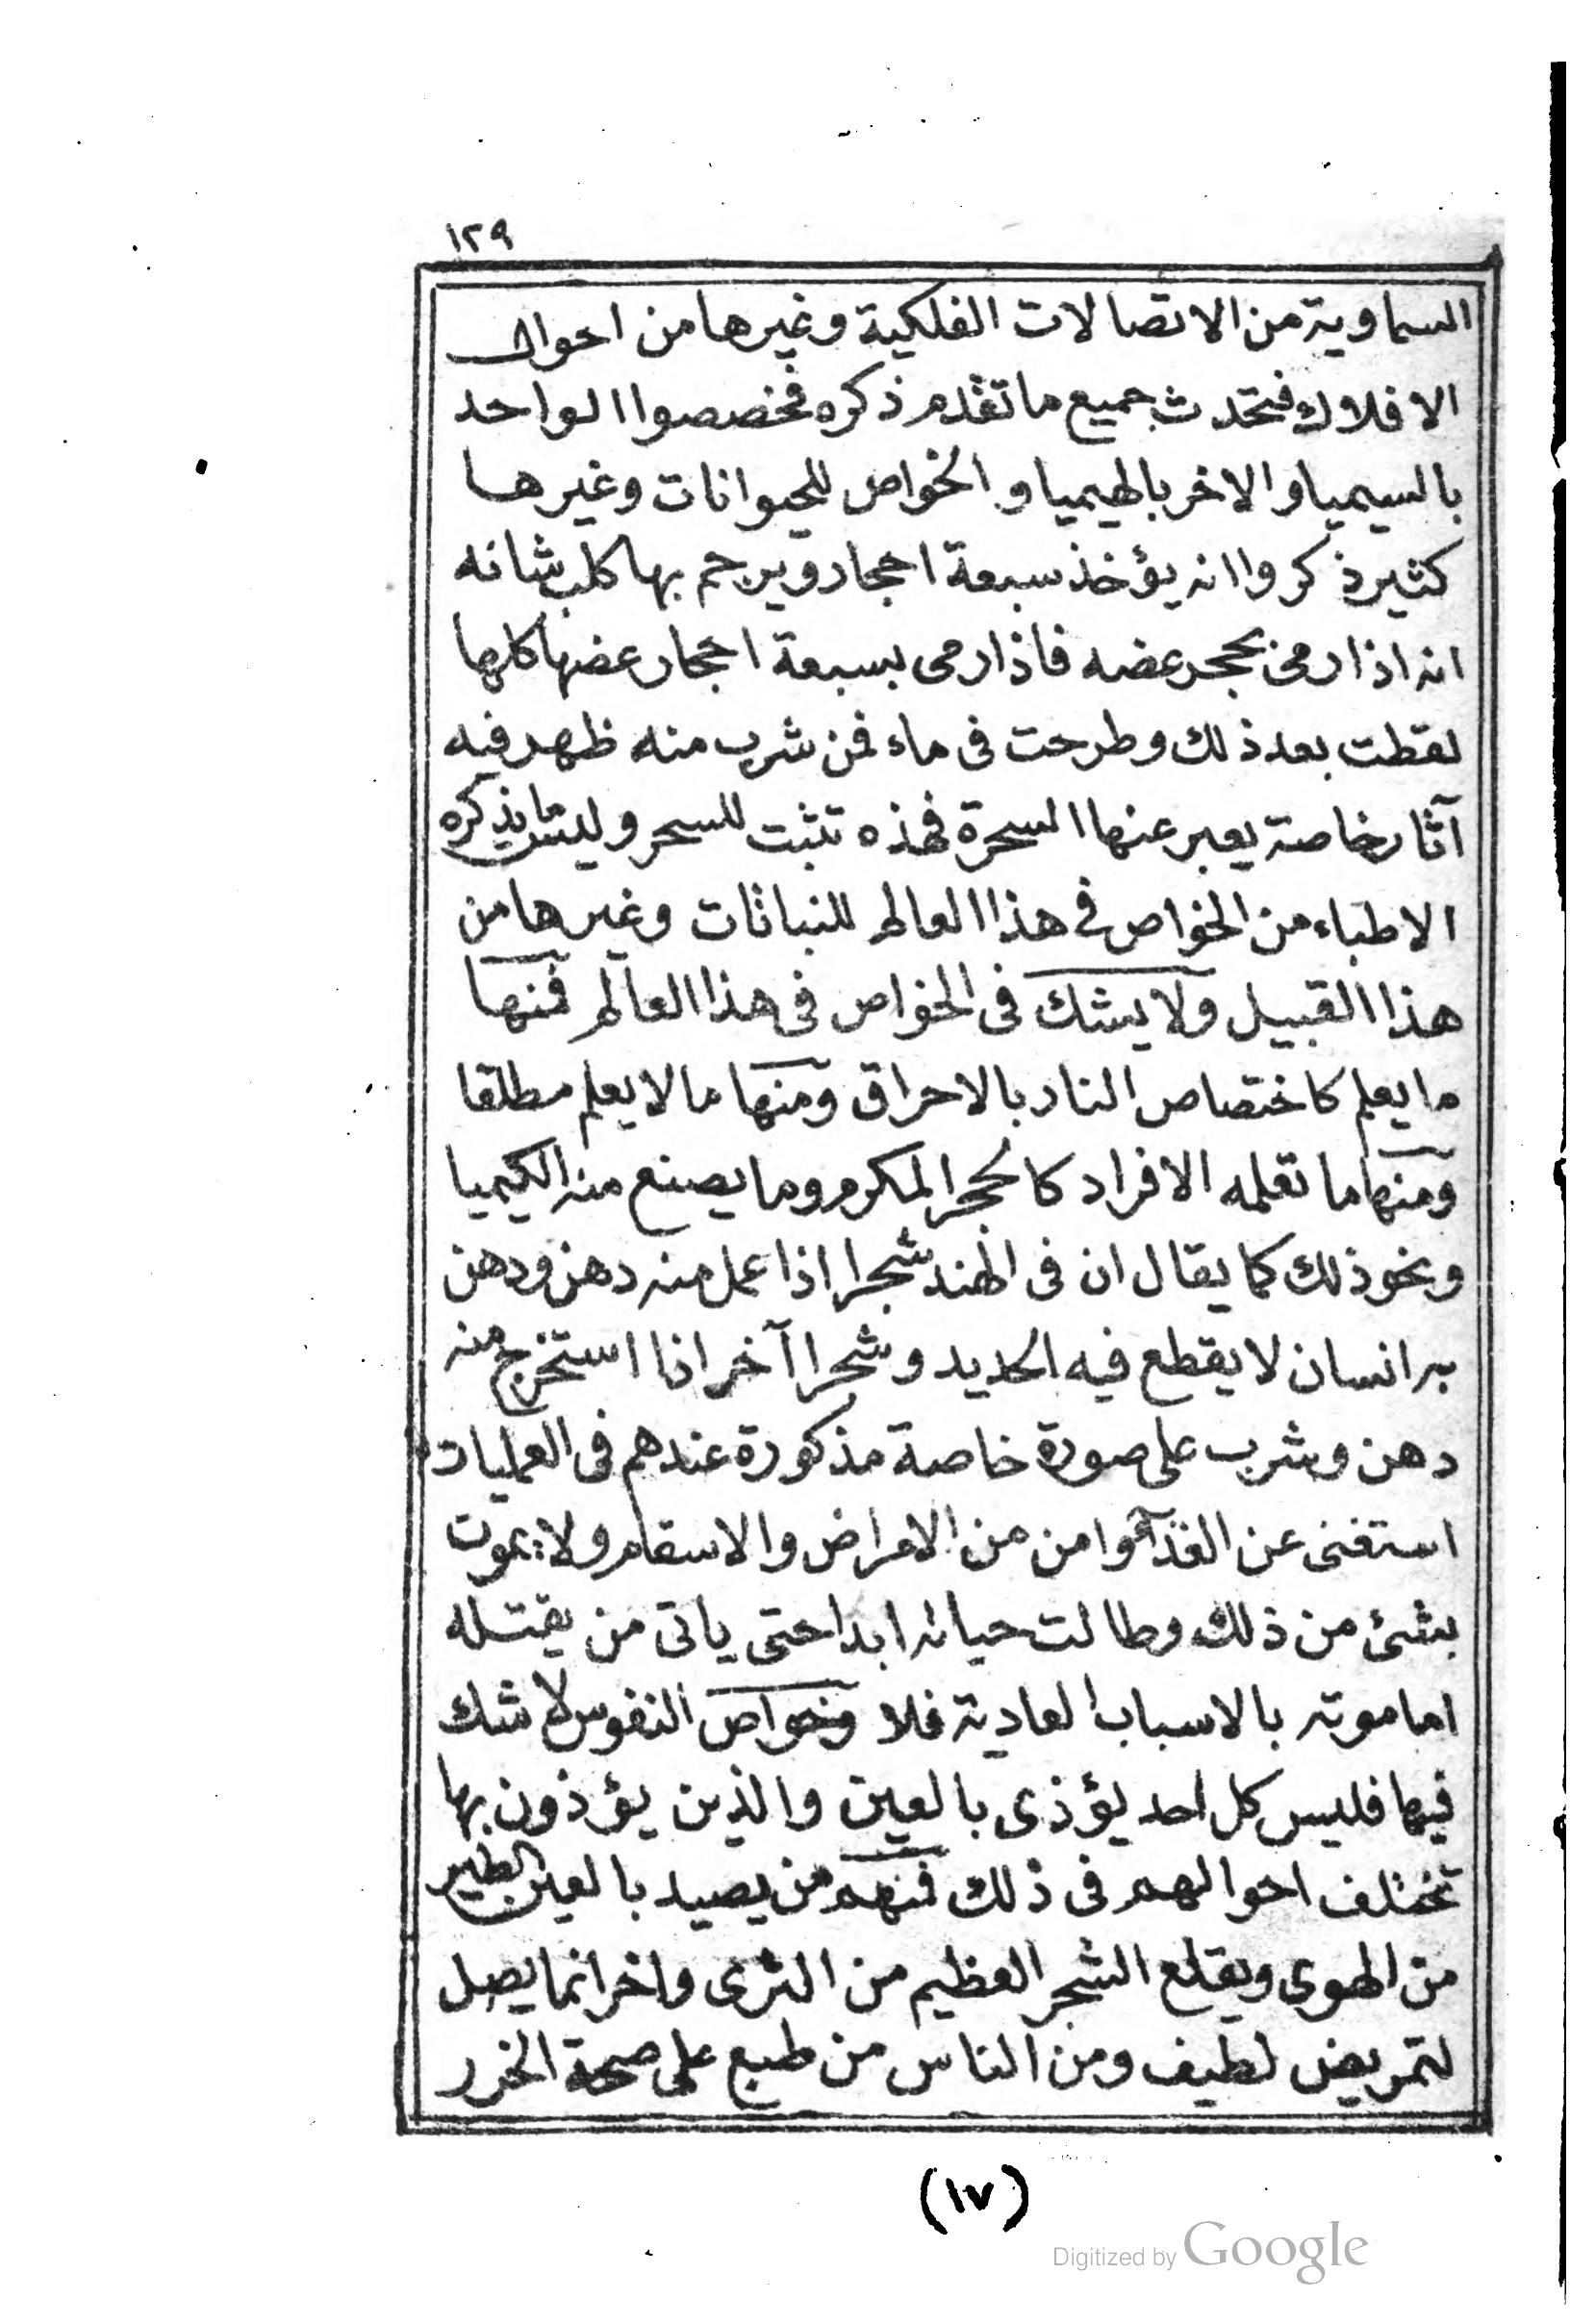 ١٢٩
السماوية من الاتصالات الفلكية وغيرها من احوال
الافلاك فتحدث جميع ما تقدم ذكره فخصصوا الواحد
بالسيميا والاخر بالهيميا والخواص للحيوانات وغيرها
كثير ذكروا انه يؤخذ سبعة احجار ويرجم بها كلب شانه
انه اذا رمى بحجر عضه فاذا رمى بسبعة احجار عضها كلها
لقطت بعد ذلك وطرحت فى ماء فمن شرب منه ظهر فيه
آثار خاصة يعبر عنها السحرة فهذه تثبت للسحر وليس ما يذكره
الاطباء من الخواص في هذا العالم للنباتات وغيرها من
هذا القبيل ولا يشك فى الخواص فى هذا العالم فمنها
ما يعلم كاختصاص النار بالاحراق ومنها ما لا يعلم مطلقا
ومنها ما تعلمه الافراد كالحجر المكرم وما يصنع منه الكيميا
ونحو ذلك كما يقال ان فى الهند شجرا اذا عمل منه دهن ودهن
به انسان لا يقطع فيه الحديد وشجرا آخر اذا استخرج منه
دهن وشرب على صورة خاصة مذكورة عندهم فى العمليات
استغنى عن الغذآء وامن من الامراض والاسقام ولا يموت
بشئ من ذلك وطالت حياته ابدا حتى ياتى من يقتله
اما موته بالاسباب العادية فلا وخواص النفوس لا شك
فيها فليس كل احد يؤذى بالعين والذين يؤذون بها
تختلف احوالهم فى ذلك فمنهم من يصيد بالعين الطير
من الهوى ويقلع الشجر العظيم من الثرى واخر انما يصل
لتمريض لطيف ومن الناس من طبع على صحة الخزر
(١٧)
Digitized by Google